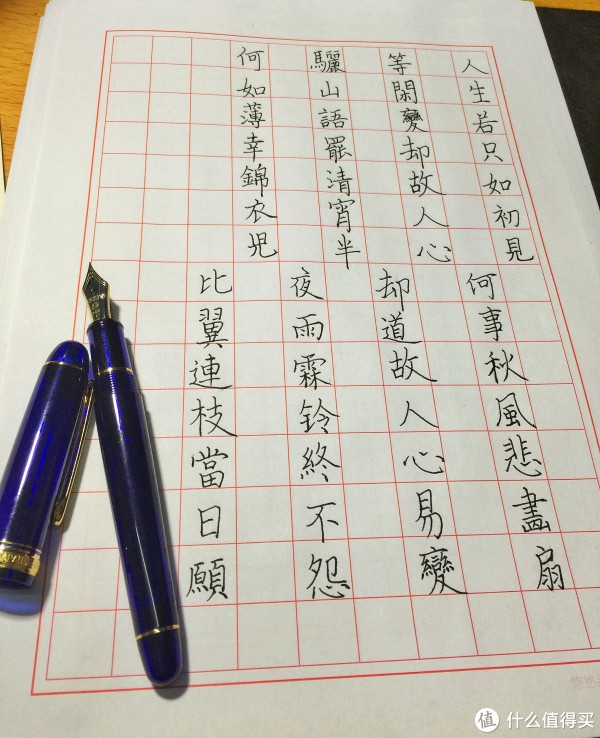 人生若只如初見
何事秋風悲畫扇
等閑變却故人心
却道故人心易變
驪山語罷清宵半
夜雨霖鈴終不怨
何如薄幸錦衣兒
比翼連枝當日願
值 什么值得买